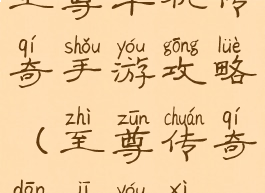 至尊单机传
qí shǒu yóu gōng lüè
奇手游攻略
zhì zūn chuán qí
（至尊传奇
dān jī yóu xì